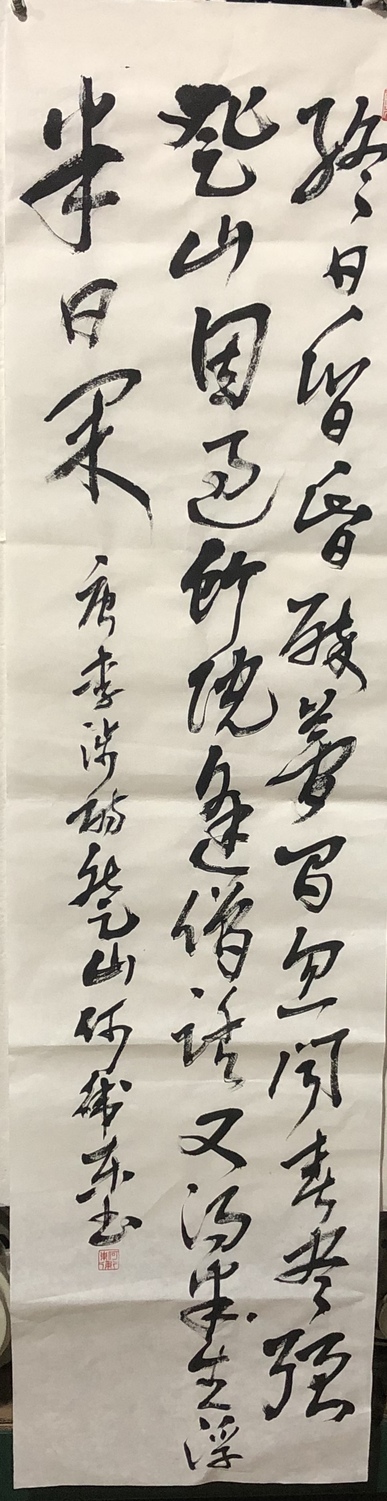 終日昏昏醉夢間忽聞春盡强
登山因過竹院逢僧話又得半生浮
半日閑
唐李涉登山何衛東書